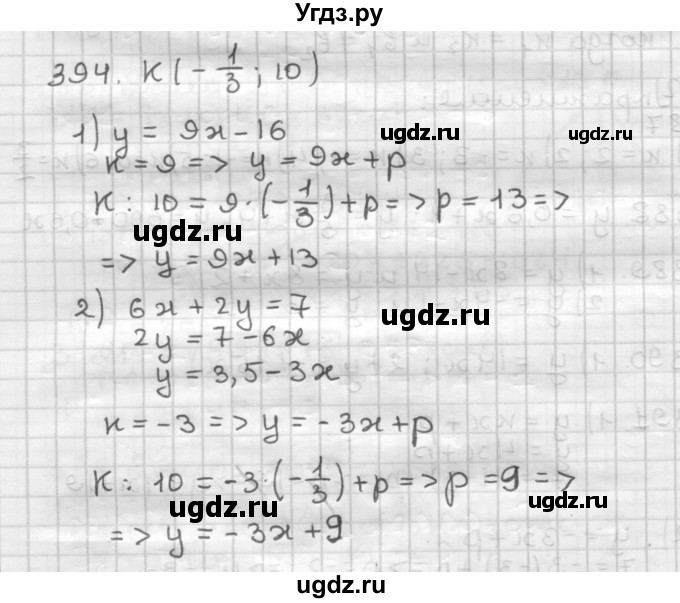 Угдз.ру
394. K(-1/3; 10)
1) y = 9x - 16
к = 9 => y = 9x + p
K: 10 = 9·(-1/3) + p => p = 13 =>
=> y = 9x + 13
2) 6x + 2y = 7
2y = 7 - 6x
y = 3,5 - 3x
к = -3 => y = -3x + p
K: 10 = -3·(-1/3) + p => p = 9 =>
=> y = -3x + 9
ugdz.ru
ugdz.ru
ugdz.ru
ugdz.ru
ugdz.ru
ugdz.ru
ugdz.ru
ugdz.ru